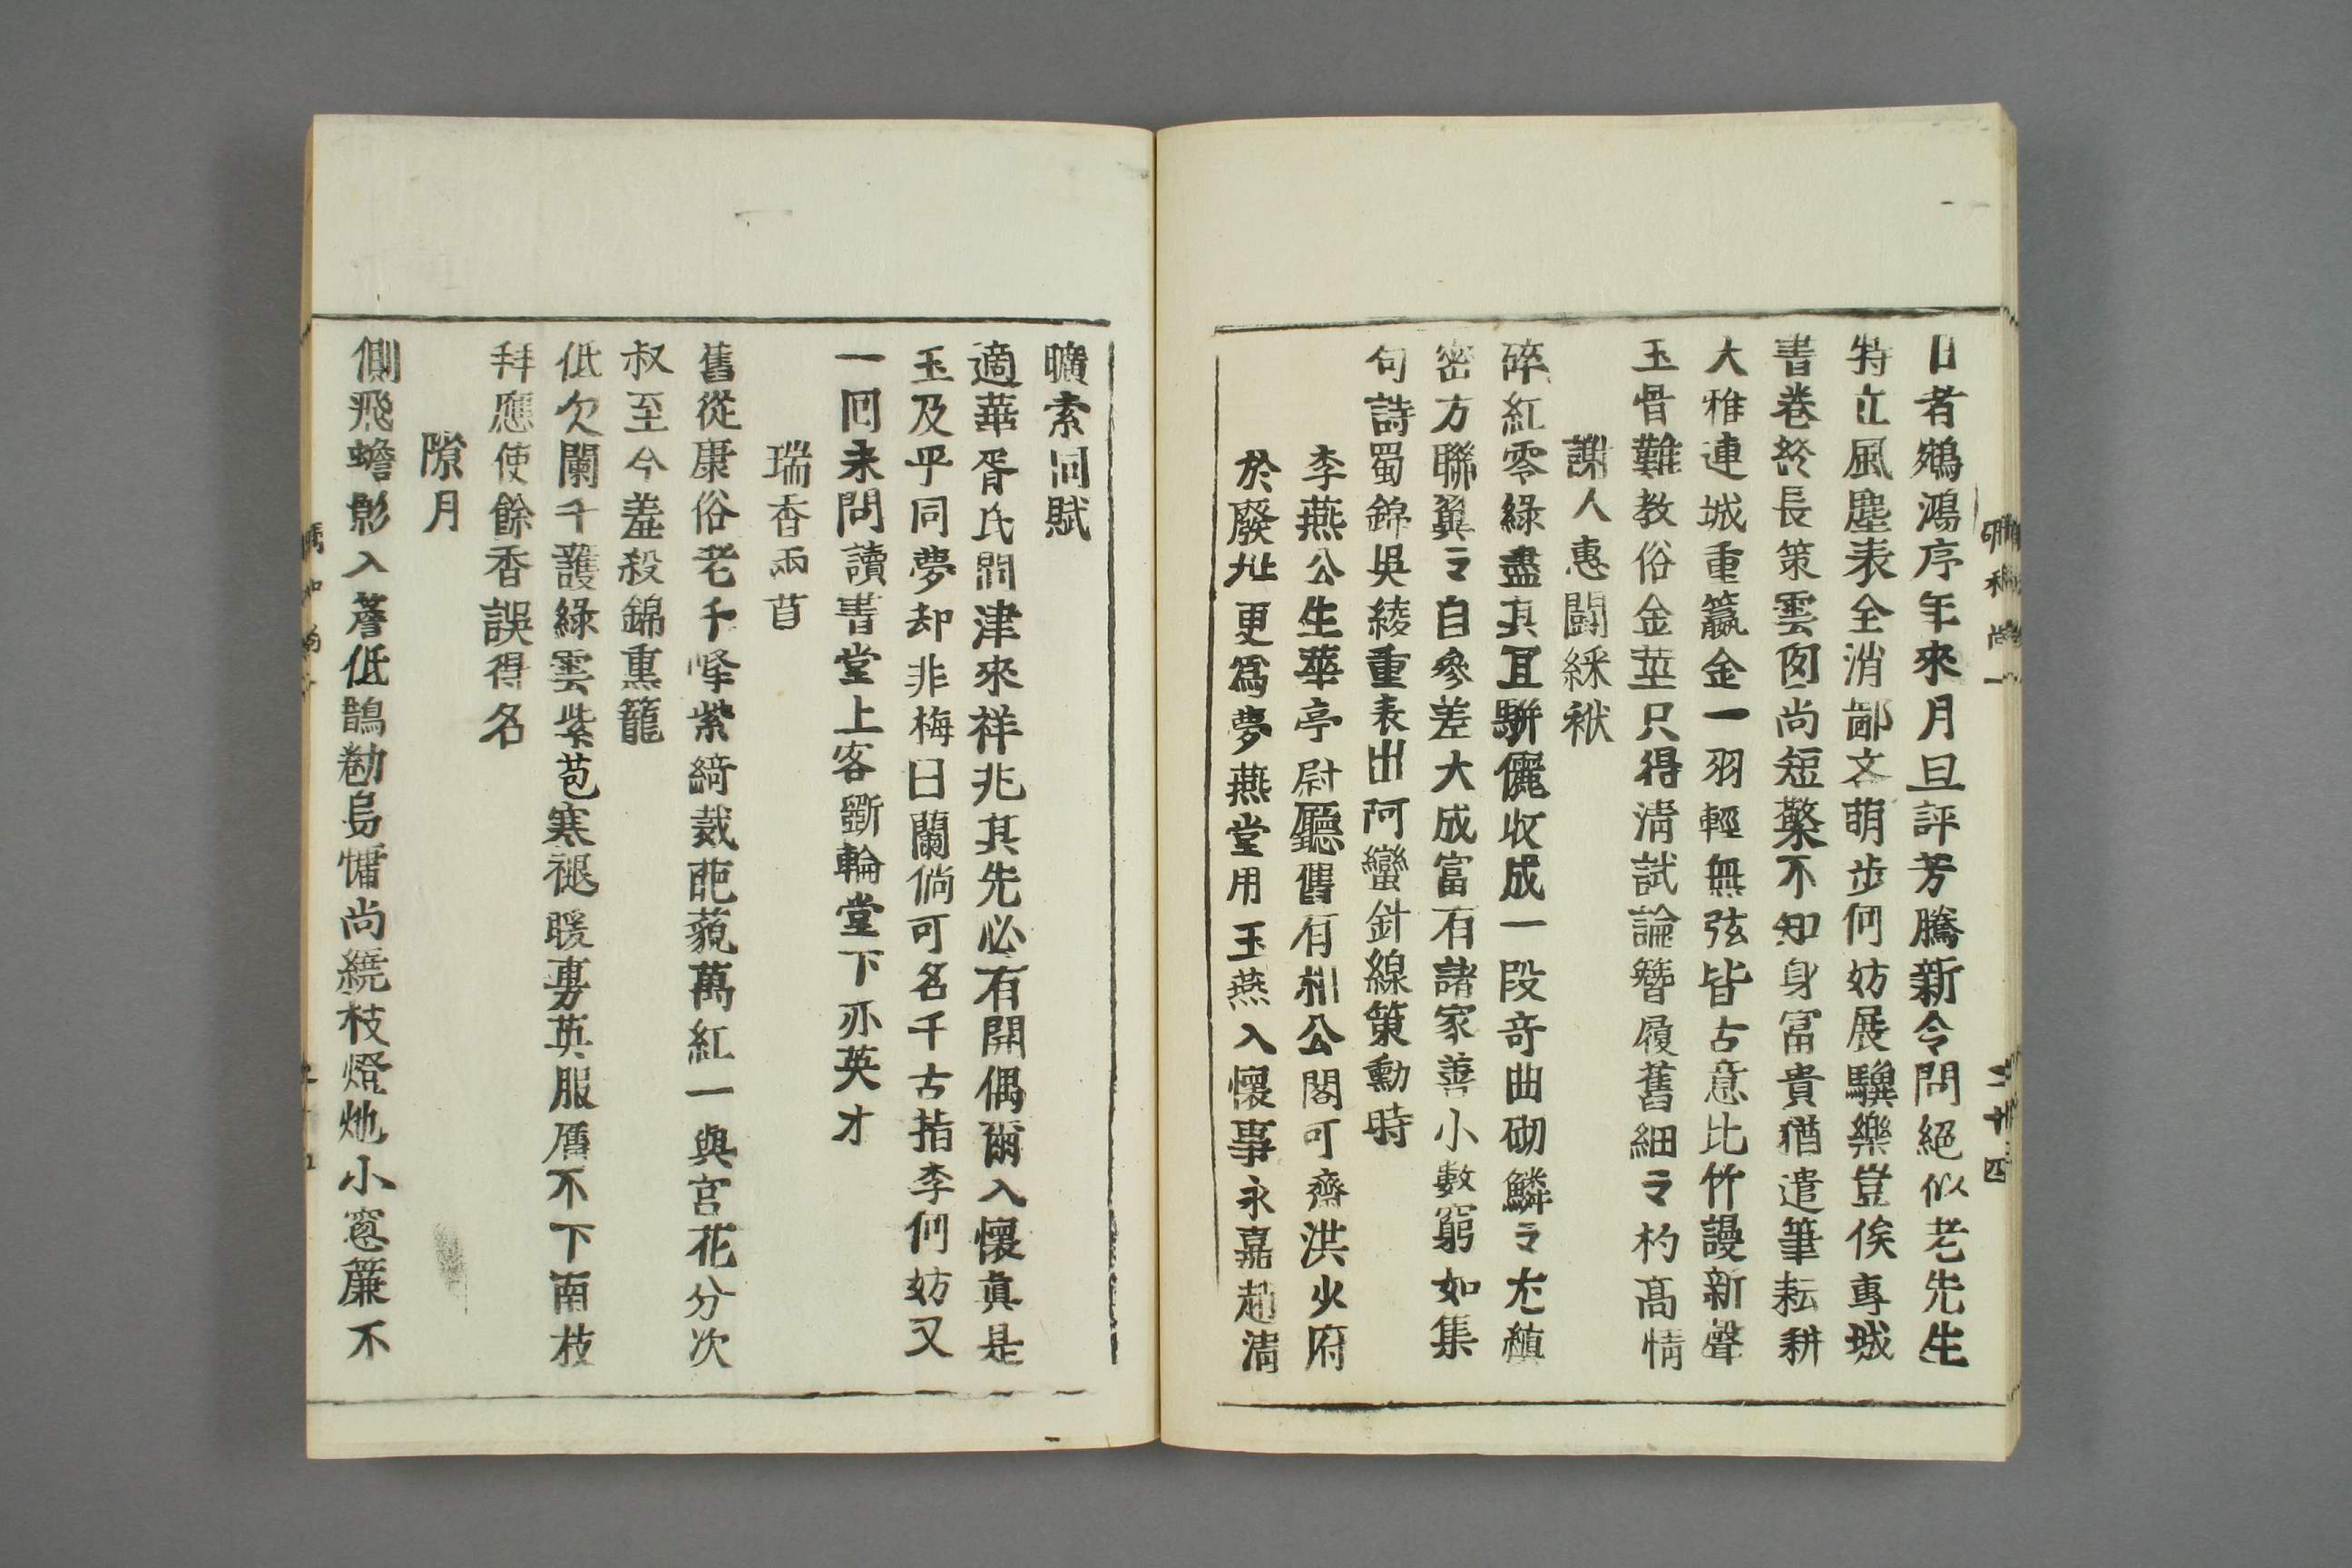 日者鵷鴻序年來月旦評芳騰新令問絕似老先生
特立風塵表全消鄙吝萌步何妨展驥樂豈俟專城
書卷於長策雲囱尚短檠不知身富貴猶遣筆耘耕
大雅連城重籯金一羽輕無弦皆古意比竹謾新聲
玉骨難教俗金莖只得清試論簪履舊細々杓高情
謝人惠鬪綵袱
碎紅零綠盡其亘駢儷收成一段奇曲砌鱗々尤縝
密方聯翼々自參差大成富有諸家善小數窮如集
句詩蜀錦吳綾重表出阿蠻針線策勳時
李燕公生華亭尉廳舊有相公閣可齋洪火府
於廢址更爲夢燕堂用玉燕入懷事永嘉趙清
曠索同賦
適華胥氏問津來祥兆其先必有開偶爾入懷眞是
玉及乎同夢却非梅日蘭倘可名千古指李何妨又
一回未問讀書堂上客斵輪堂下亦英才
瑞香兩首
舊從康俗老千峰紫綺裁葩藐萬紅一與宮花分次
叔至今羞殺錦熏籠
低欠闌干護綠雲紫苞寒褪暖專英服膺不下南枝
拜應使餘香誤得名
隙月
側飛蟾影入簷低鵲勸烏慵尚繞枝燈灺小窻簾不
二十四